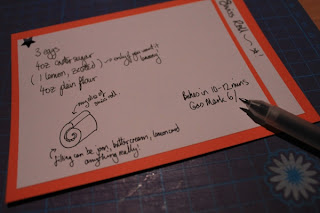 Swiss Roll
3 eggs
4oz caster sugar
(1 lemon, zested) → only if you want it
lemony
4oz plain flour
Bakes in 10-12 mins
Gas Mark 6/
swiss roll.
filling can be jam, buttercream, lemon curd
anything really!